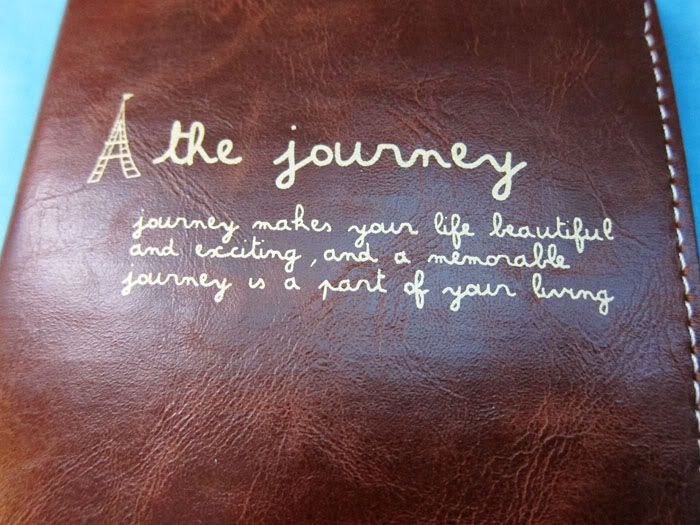 the journey
journey makes your life beautiful
and exciting, and a memorable
journey is a part of your living